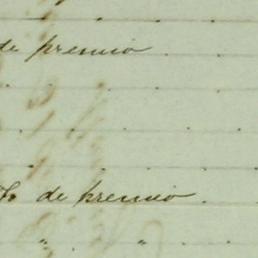 de premio
de premio
"